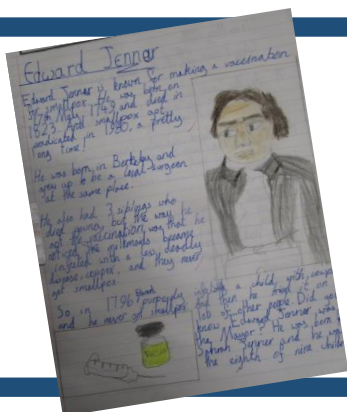 Edward Jennar
Edward Jennar is known for making a vaccination
for smallpox. He was born on
17th May, 1749 and died in
1823. And smallpox got
eradicated in 1980, a pretty
long time!
He was born in Berkeley and
grew up to be a local surgeon
at the same place.
He also had 3 siblings who
died young but the way he
got the vaccination was that he
noticed the milkmaids became
infected with a less deadly
disease, cowpox, and they never
got smallpox.
So, in 1796
and he never got smallpox
a child with
and then he tried it on a
lot of other people. Did you
know Edward Jennar was
the Mayor? He was born
Jennar and he was
the eighth of nine